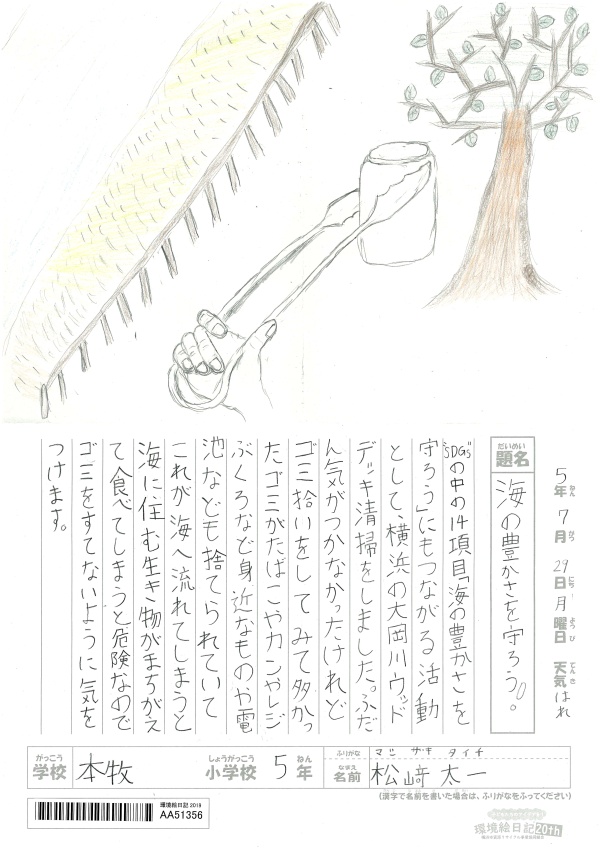 5年 7月 29日 月曜日 天気 はれ
ねん がつ にち ようび てんき
だいめい
題名
海の豊かさを守ろう。
"SDGs"の中の14項目「海の豊かさを
守ろう」にもつながる活動
として、横浜の大岡川ウッド
デッキ清掃をしました。ふだ
ん気がつかなかったけれど
ゴミ拾いをしてみて多かっ
たゴミがたばこやカンやレジ
ぶくろなど身近なものや電
池なども捨てられていて
これが海へ流れてしまうと
海に住む生き物がまちがえ
て食べてしまうと危険なので
ゴミをすてないように気を
つけます。
がっこう しょうがっこう ねん ふりがな マツ ザキ タイチ
学校 本牧 小学校 5年 なまえ 名前 松﨑 太一
(漢字で名前を書いた場合は、ふりがなをふってください)
環境絵日記 2019
AA51356
環境絵日記 20th